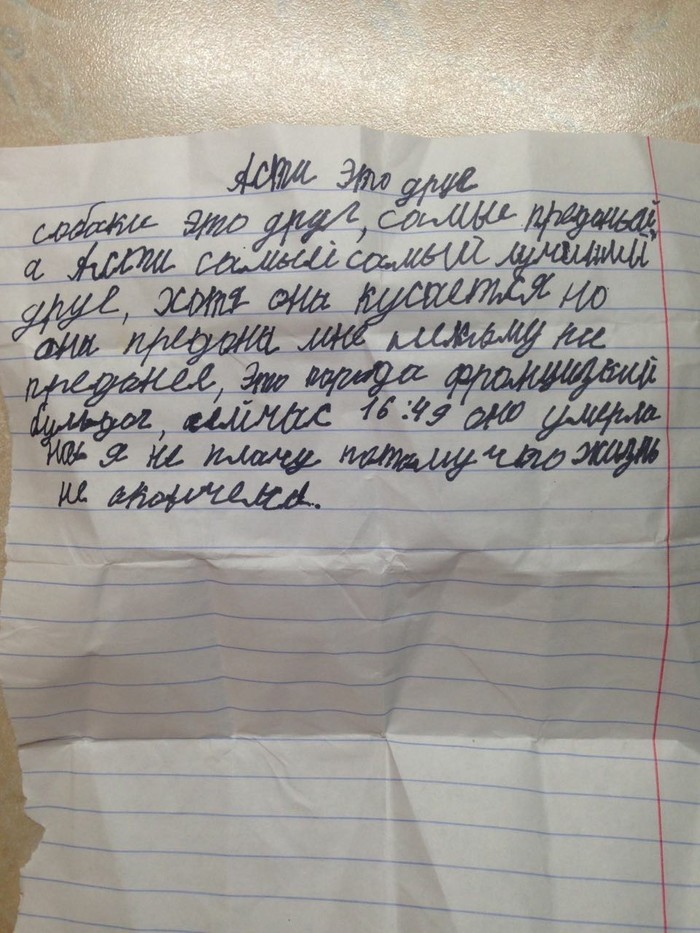 Асти это друг
собаки это друг, самые преданый
а Асти самый самый лучший
друг, хотя она кусается но
она предона мне никому не
преданея, это порода француский
бульдог, сейчас 16:49 оно умерла
но я не плачу потому что жизнь
не окончена.